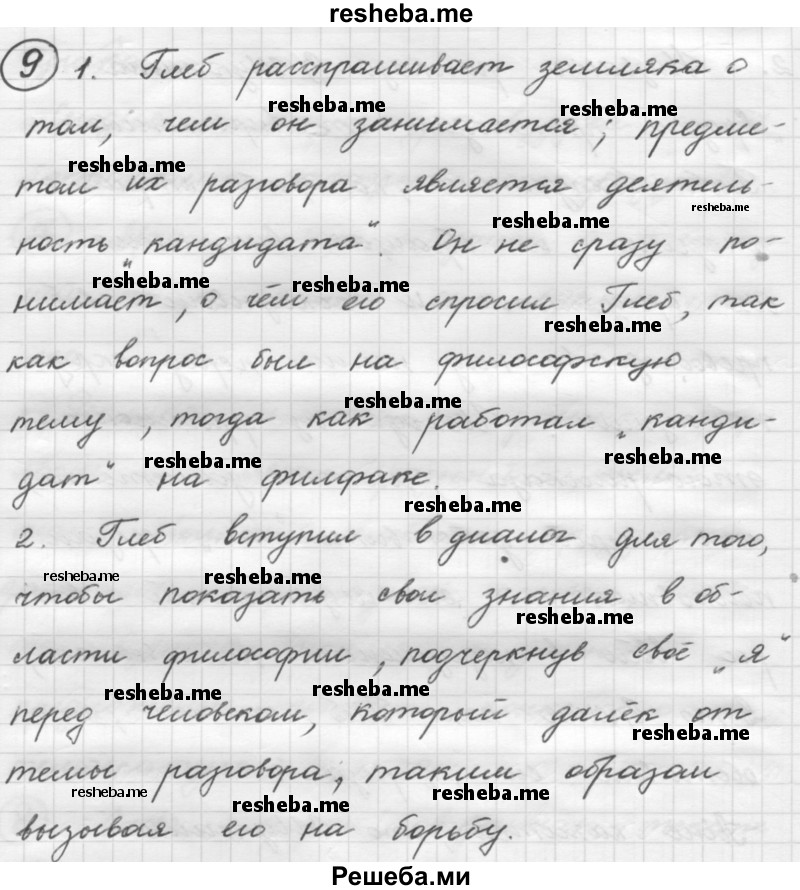 resheba.me
9 1. Глеб расспрашивает земляка о
resheba.me resheba.me
том, чем он занимается; предме-
resheba.me
том их разговора является деятель-
resheba.me resheba.me
ность "кандидата". Он не сразу по-
resheba.me resheba.me
нимает, о чём его спросил Глеб, так
resheba.me
как вопрос был на философскую
resheba.me
тему, тогда как работал „канди-
resheba.me resheba.me
дат" на филфаке.
resheba.me
2. Глеб вступил в диалог для того,
resheba.me resheba.me
чтобы показать свои знания в об-
resheba.me
ласти философии, подчеркнув своё „я"
resheba.me resheba.me
перед человеком, который далёк от
resheba.me
темы разговора, таким образом
resheba.me resheba.me resheba.me
вызывая его на борьбу.
Решеба.ми